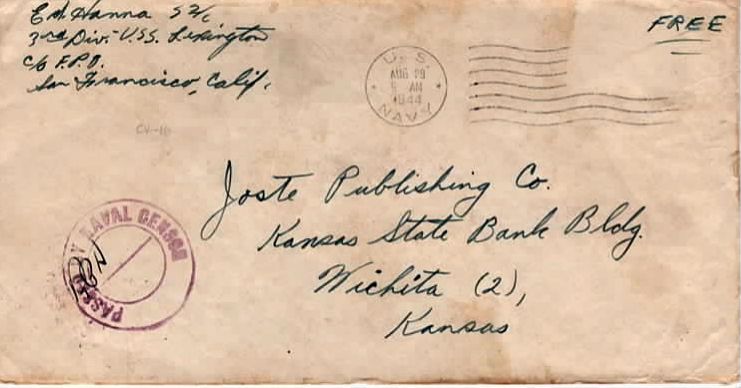 Ed Hanna S 2/c
3rd Div. U.S.S. Lexington
c/o F.P.O.
San Francisco, Calif.
FREE
U.S.
AUG 29
AM
1944
NAVY
CV-16
Joste Publishing Co.
Kansas State Bank Bldg.
Wichita (2),
Kansas
PASSED BY NAVAL CENSOR